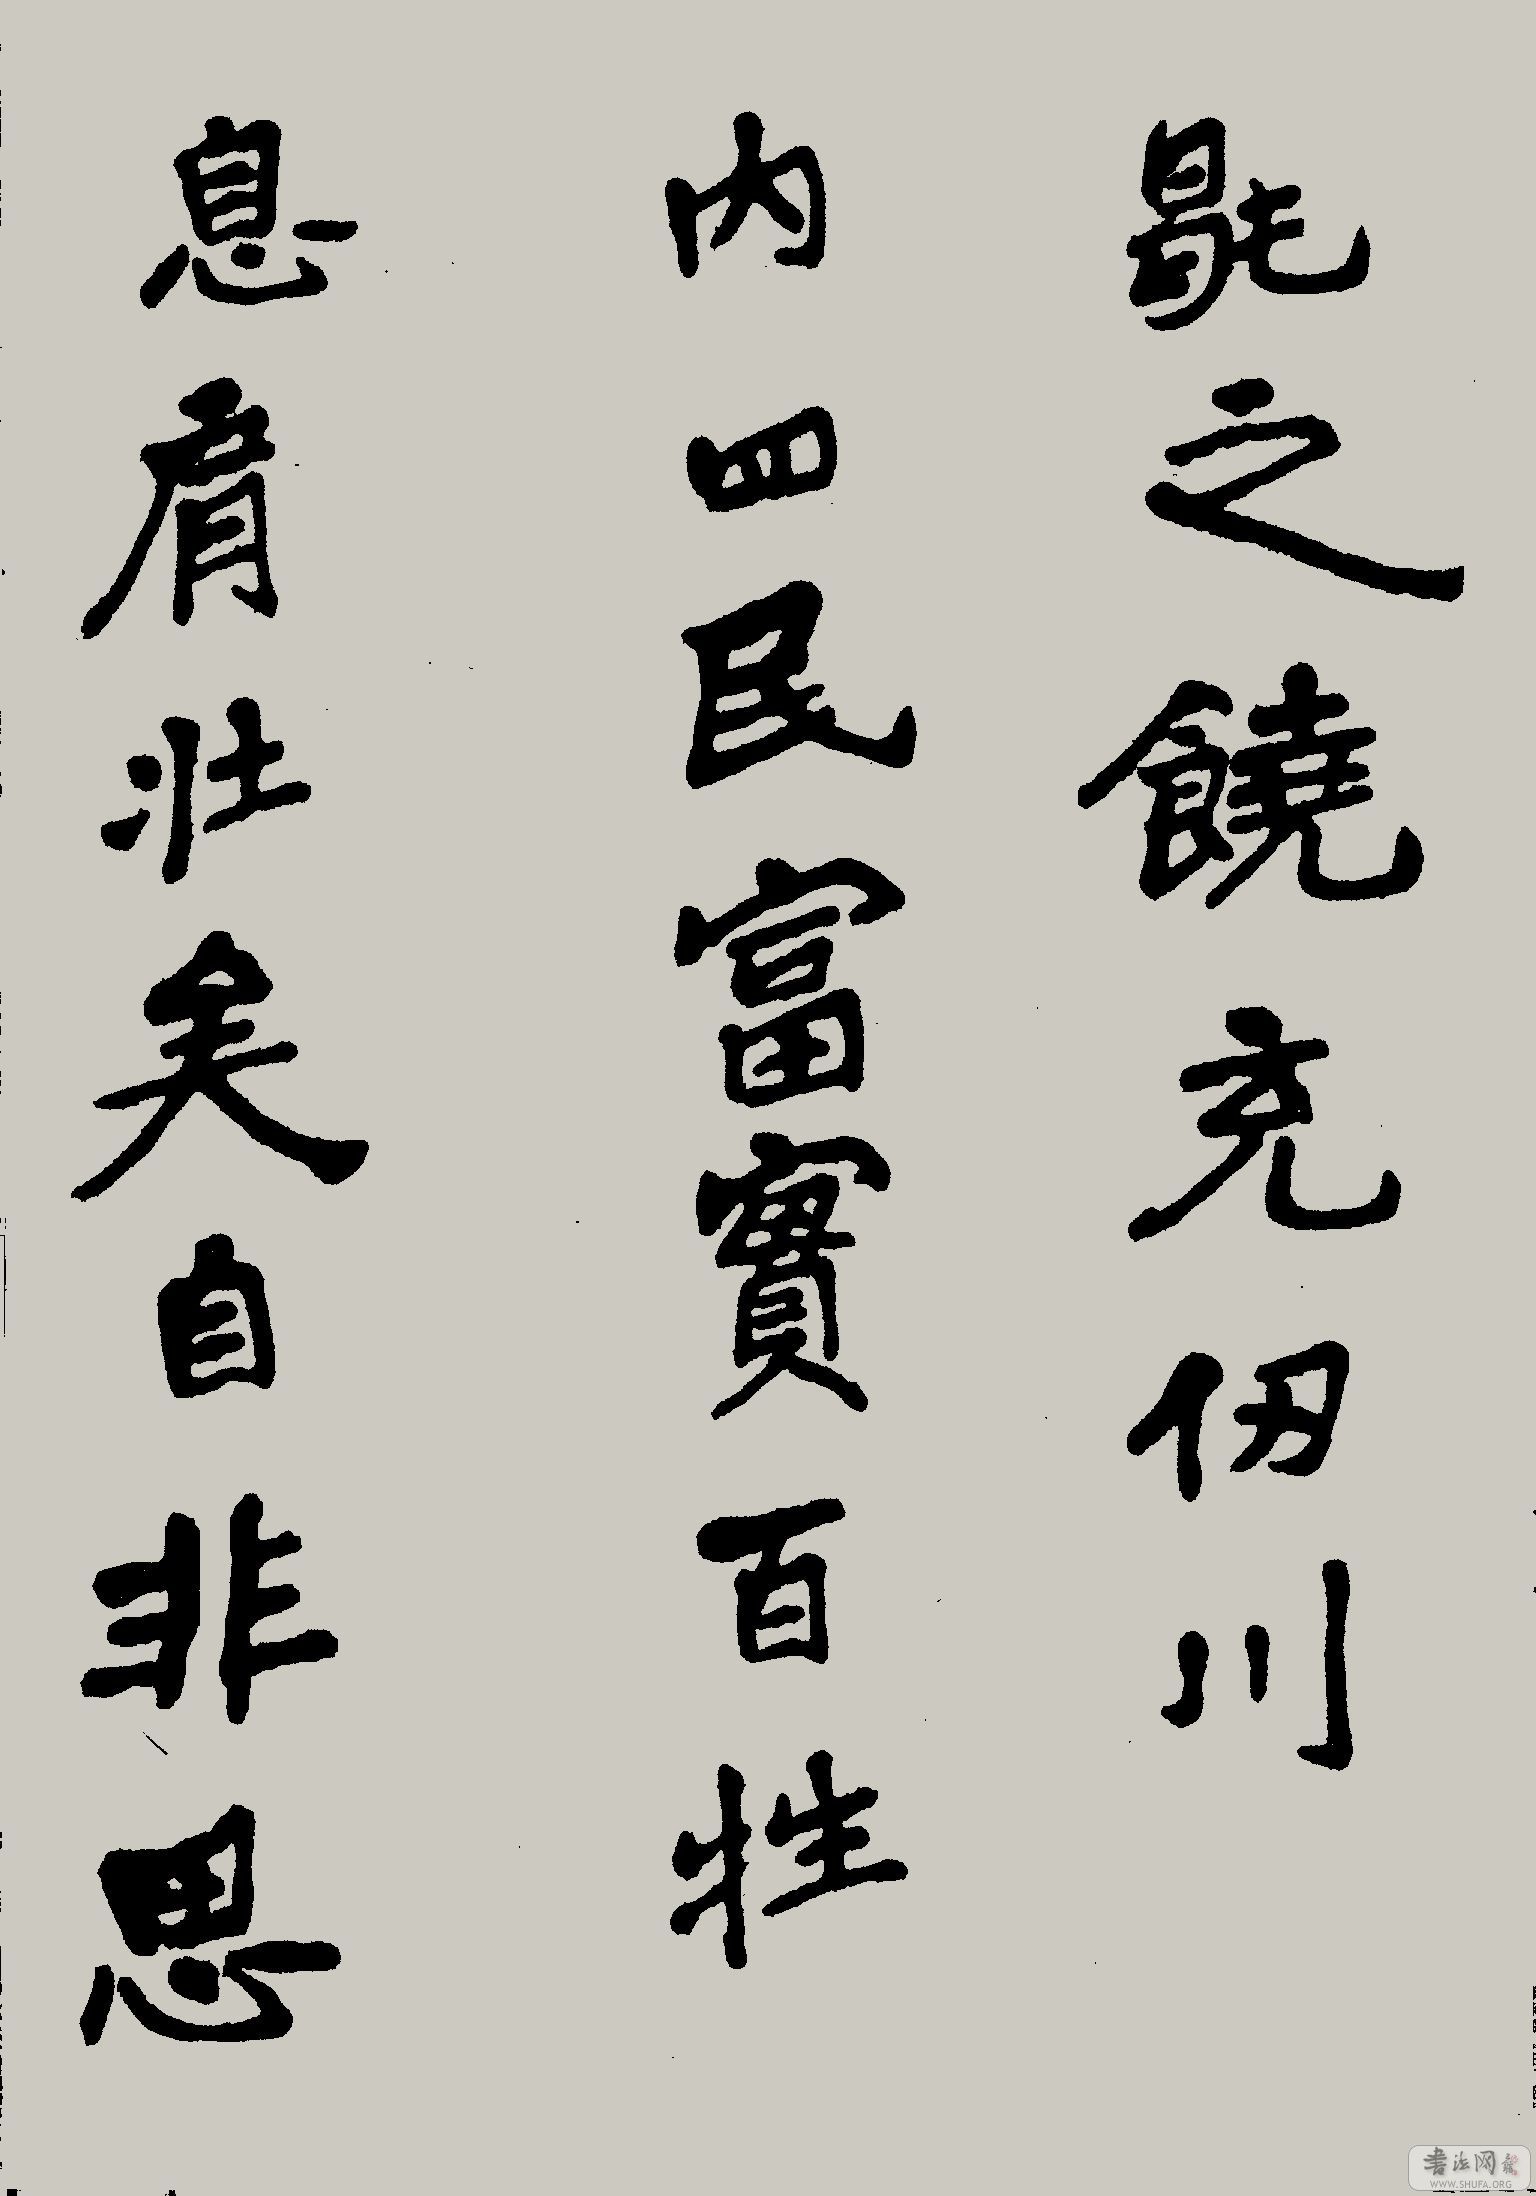 毼之饒充仞川
內四民富實百姓
息肩壯矣自非思
書法网
WWW.SHUFA.ORG